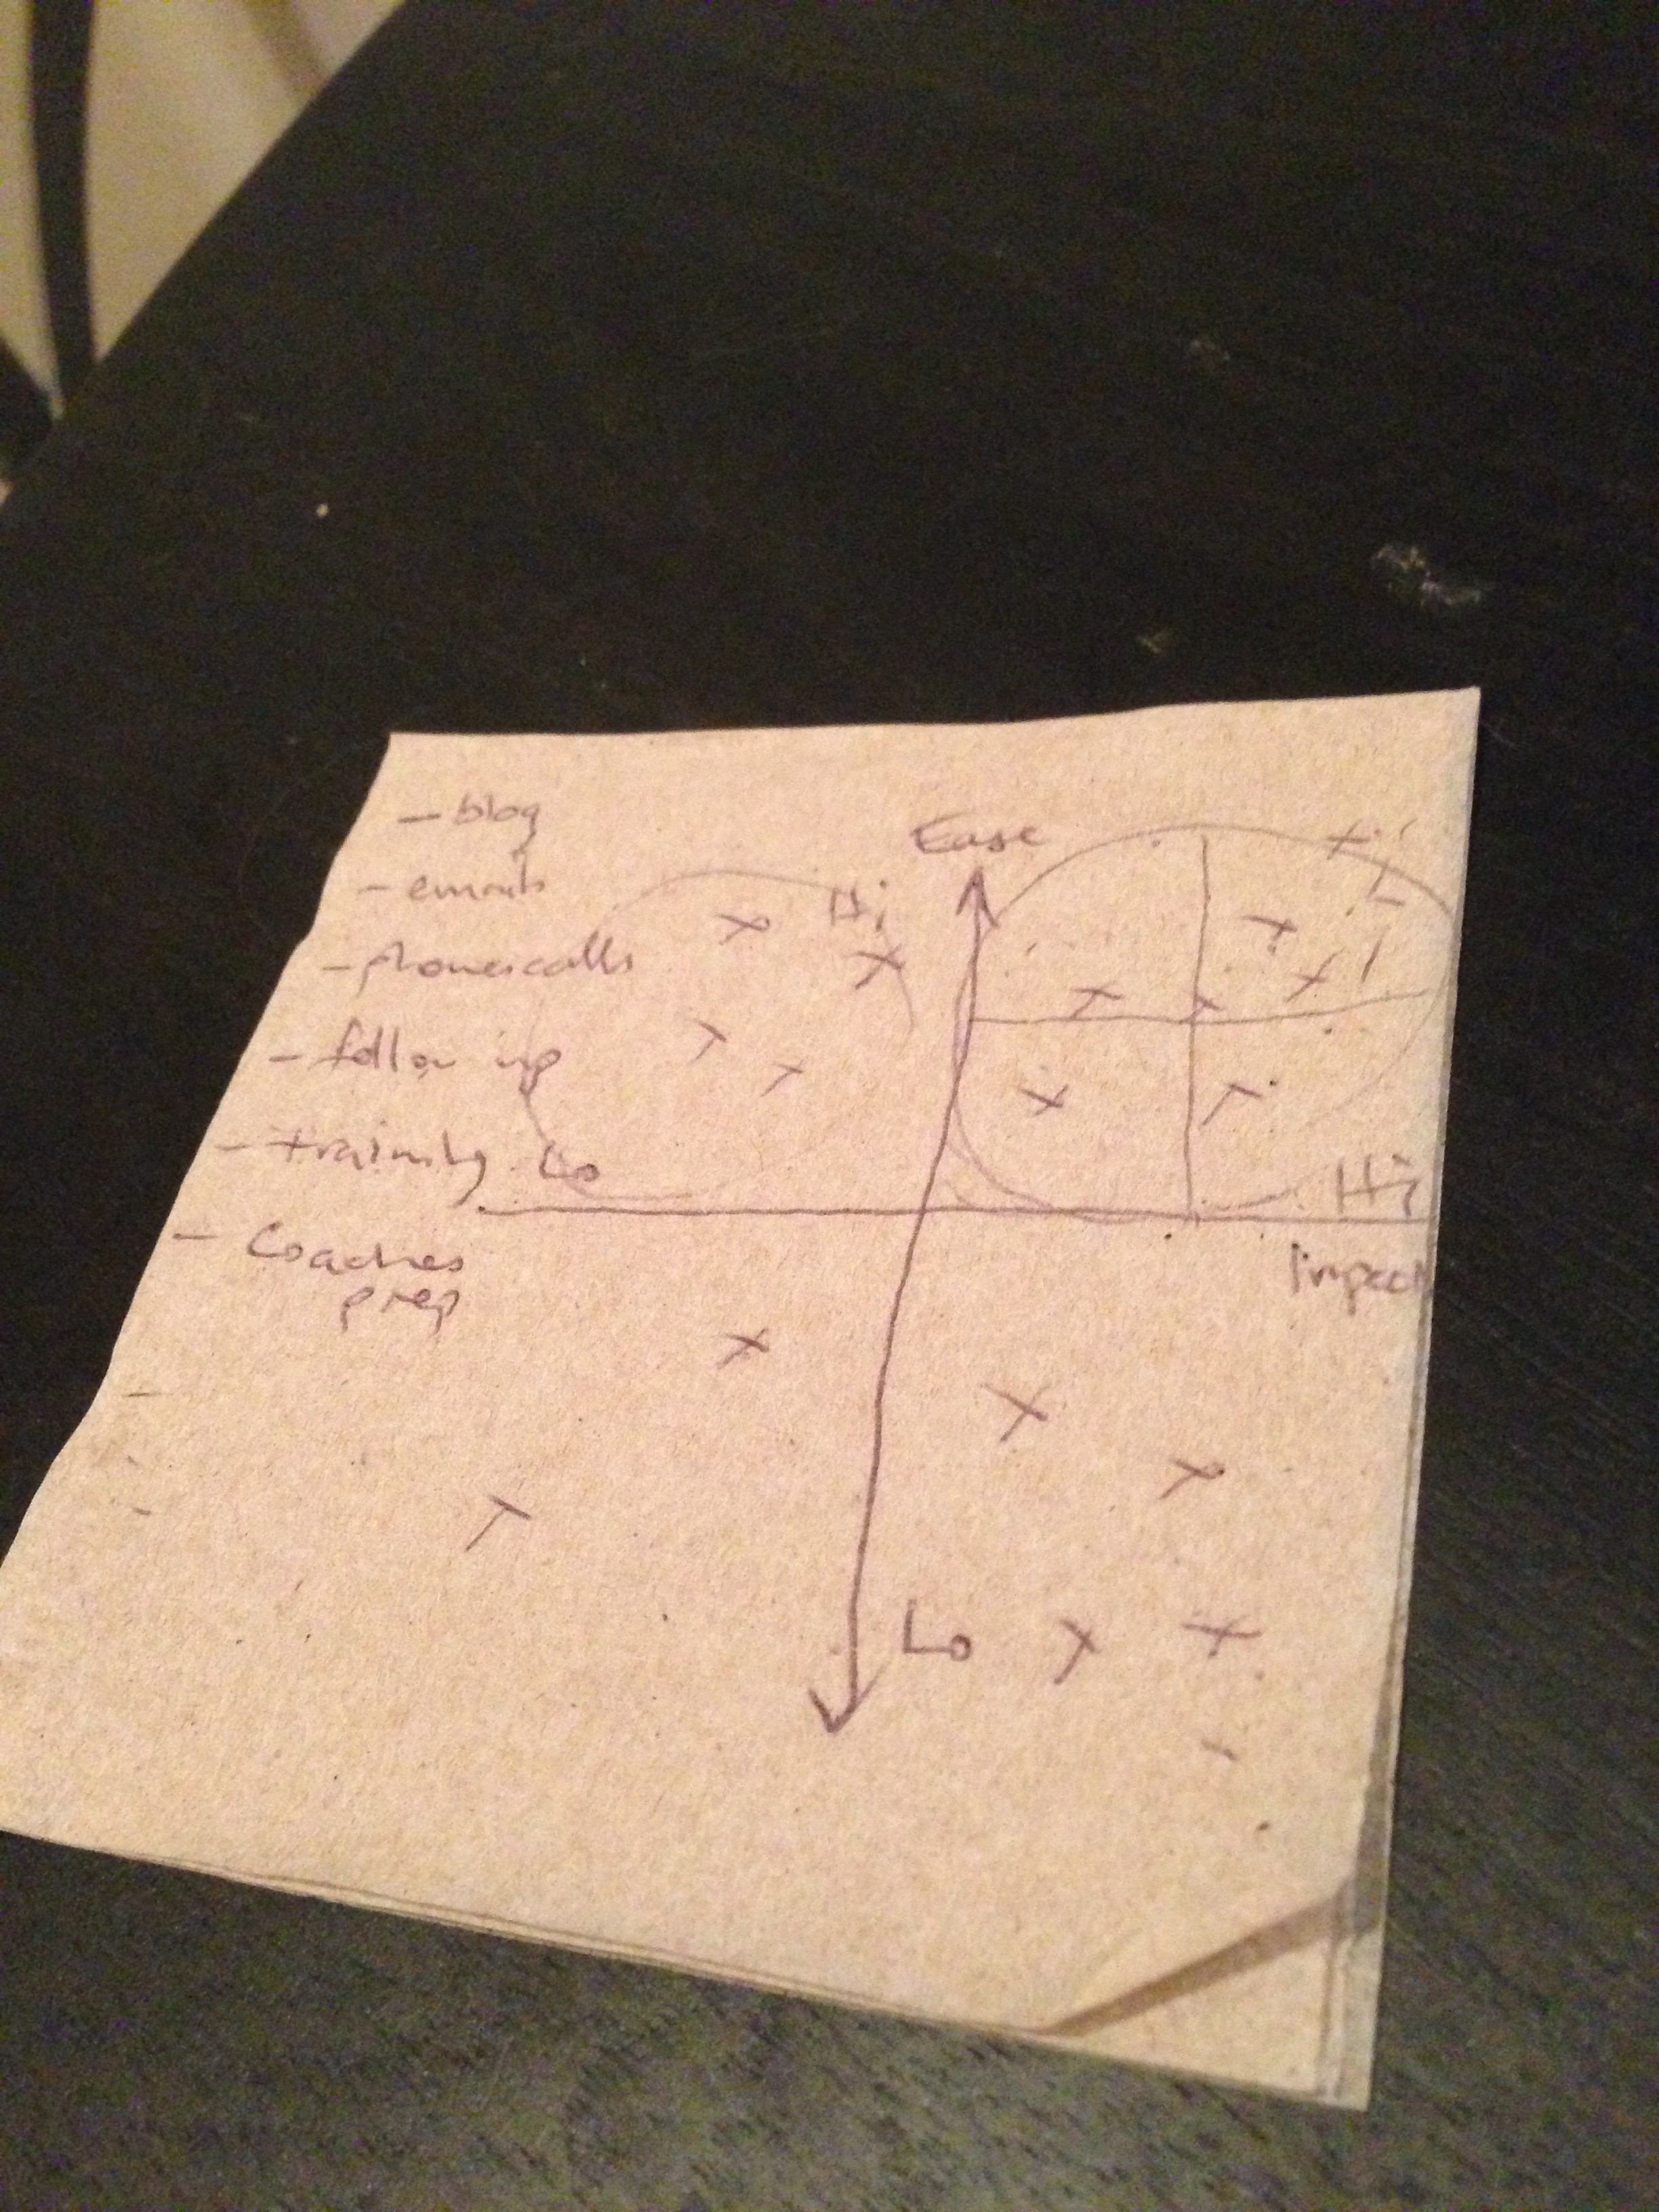 - blog
- emails
- phonescalls
- follow up
- training
- Coaches
prep
Ease
Hi
Lo
Hi
impact
Lo